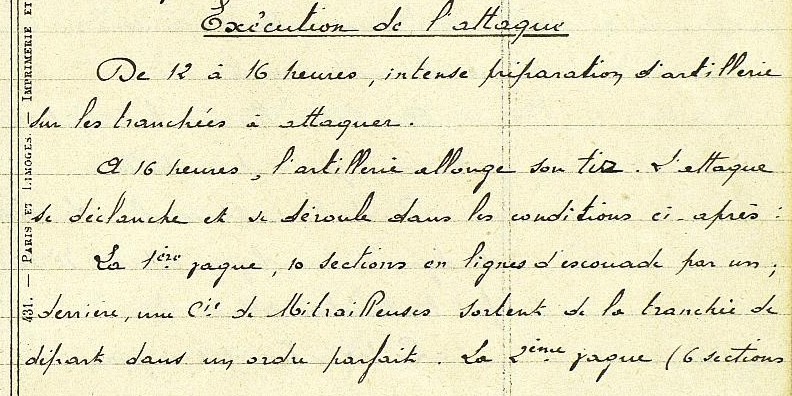 Exécution de l'attaque
De 12 à 16 heures, intense préparation d'artillerie
sur les tranchées à attaquer.
A 16 heures, l'artillerie allonge son tir. L'attaque
se déclanche et se déroule dans les conditions ci-après :
La 1ère vague, 10 sections en lignes d'escouade par un ;
derrière, une Cie de Mitrailleuses sortent de la tranchée de
départ dans un ordre parfait. La 2ème vague (6 sections
431. — PARIS ET LIMOGES. — IMPRIMERIE ET